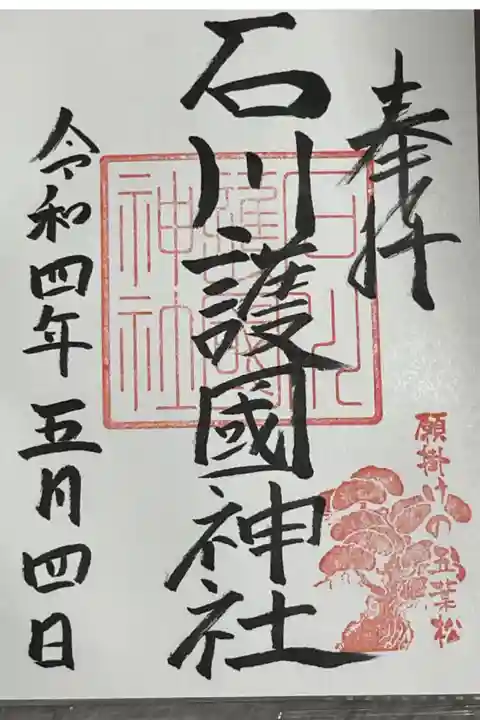 奉拝
石川護國神社
石川
護國
神社
願掛けの五葉松
令和四年五月四日